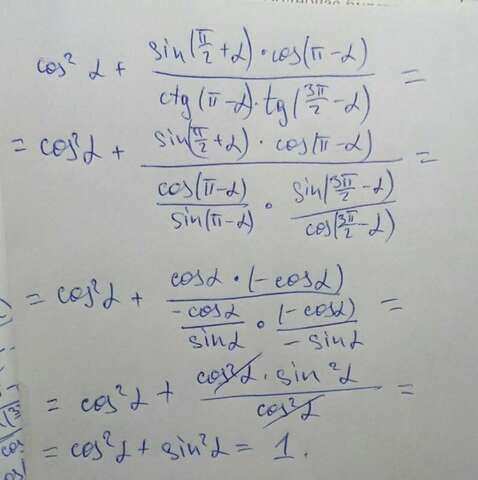 cos² α + (sin(π/2 + α) · cos(π - α)) / (ctg(π - α) · tg(3π/2 - α)) =
= cos² α + (sin(π/2 + α) · cos(π - α)) / (cos(π - α)/sin(π - α) · sin(3π/2 - α)/cos(3π/2 - α)) =
= cos² α + (cos α · (-cos α)) / (-cos α/sin α · (-cos α)/-sin α) =
= cos² α + (cos² α · sin² α) / cos² α =
= cos² α + sin² α = 1.